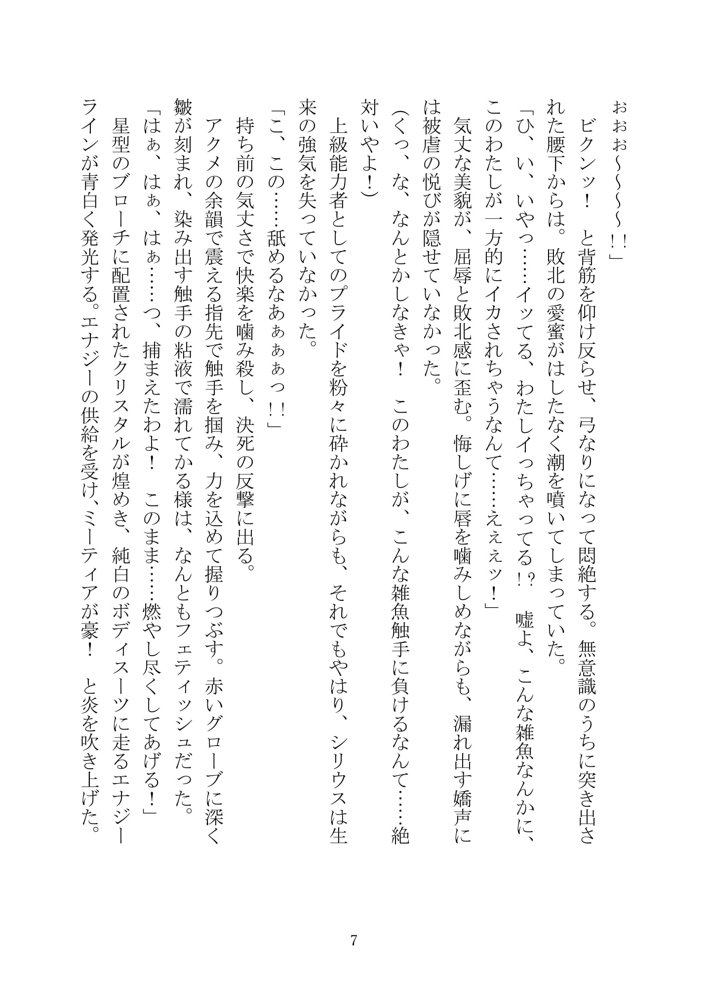 ぉぉぉ～～～～!!」
　ビクンッ！　と背筋を仰け反らせ、弓なりになって悶絶する。無意識のうちに突き出さ
れた腰下からは。敗北の愛蜜がはしたなく潮を噴いてしまっていた。
「ひ、い、いやっ……イッてる、わたしイっちゃってる!?　嘘よ、こんな雑魚なんかに、
このわたしが一方的にイカされちゃうなんて……えぇぇッ！」
　気丈な美貌が、屈辱と敗北感に歪む。悔しげに唇を噛みしめながらも、漏れ出す嬌声に
は被虐の悦びが隠せていなかった。
（くっ、な、なんとかしなきゃ！　このわたしが、こんな雑魚触手に負けるなんて……絶
対いやよ！）
　上級能力者としてのプライドを粉々に砕かれながらも、それでもやはり、シリウスは生
来の強気を失っていなかった。
「こ、この……舐めるなあぁぁぁっ!!」
　持ち前の気丈さで快楽を噛み殺し、決死の反撃に出る。
　アクメの余韻で震える指先で触手を掴み、力を込めて握りつぶす。赤いグローブに深く
皺が刻まれ、染み出す触手の粘液で濡れてかる様は、なんともフェティッシュだった。
「はぁ、はぁ、はぁ……つ、捕まえたわよ！　このまま……燃やし尽くしてあげる！」
　星型のブローチに配置されたクリスタルが煌めき、純白のボディスーツに走るエナジー
ラインが青白く発光する。エナジーの供給を受け、ミーティアが豪！　と炎を吹き上げた。
7